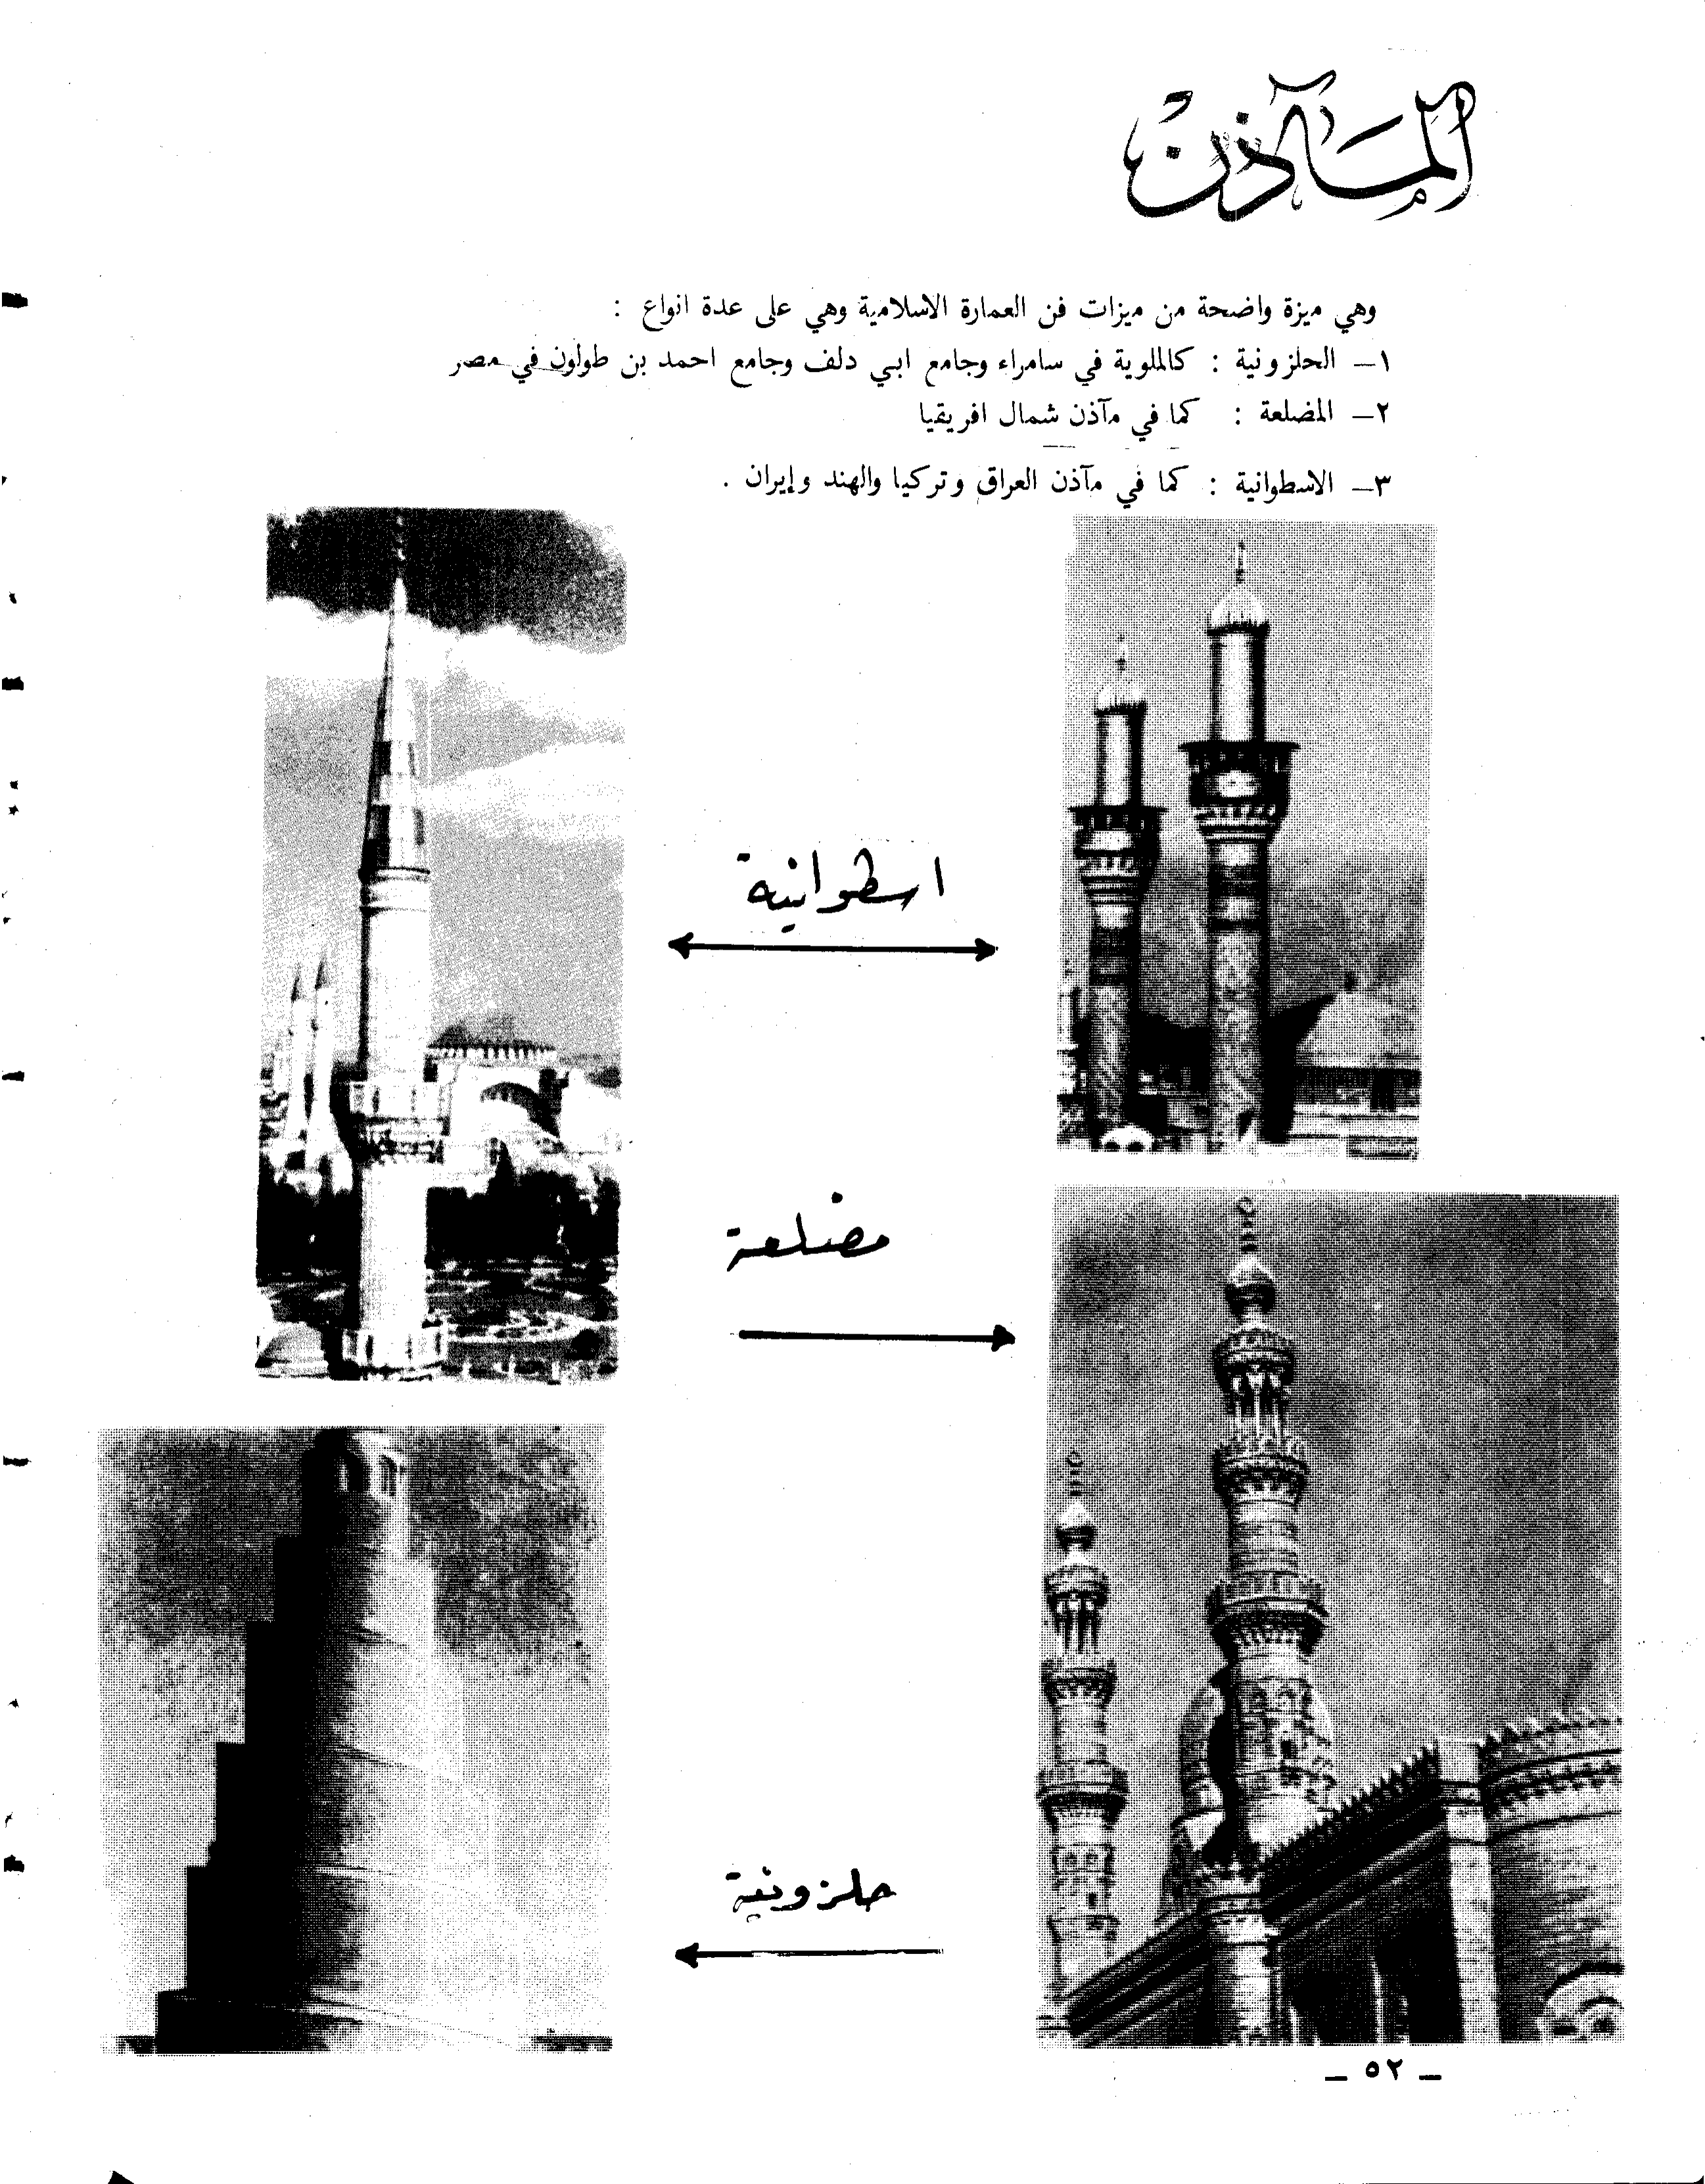 المآذن
وهي ميزة واضحة من ميزات فن العمارة الاسلامية وهي على عدة انواع :
١ـ الحلزونية : كالملوية في سامراء وجامع ابي دلف وجامع احمد بن طولون في مصر
٢ـ المضلعة : كما في مآذن شمال افريقيا
٣ـ الاسطوانية : كما في مآذن العراق وتركيا والهند وإيران .
اسطوانية
مضلعة
حلزونية
ـ ٥٢ ـ